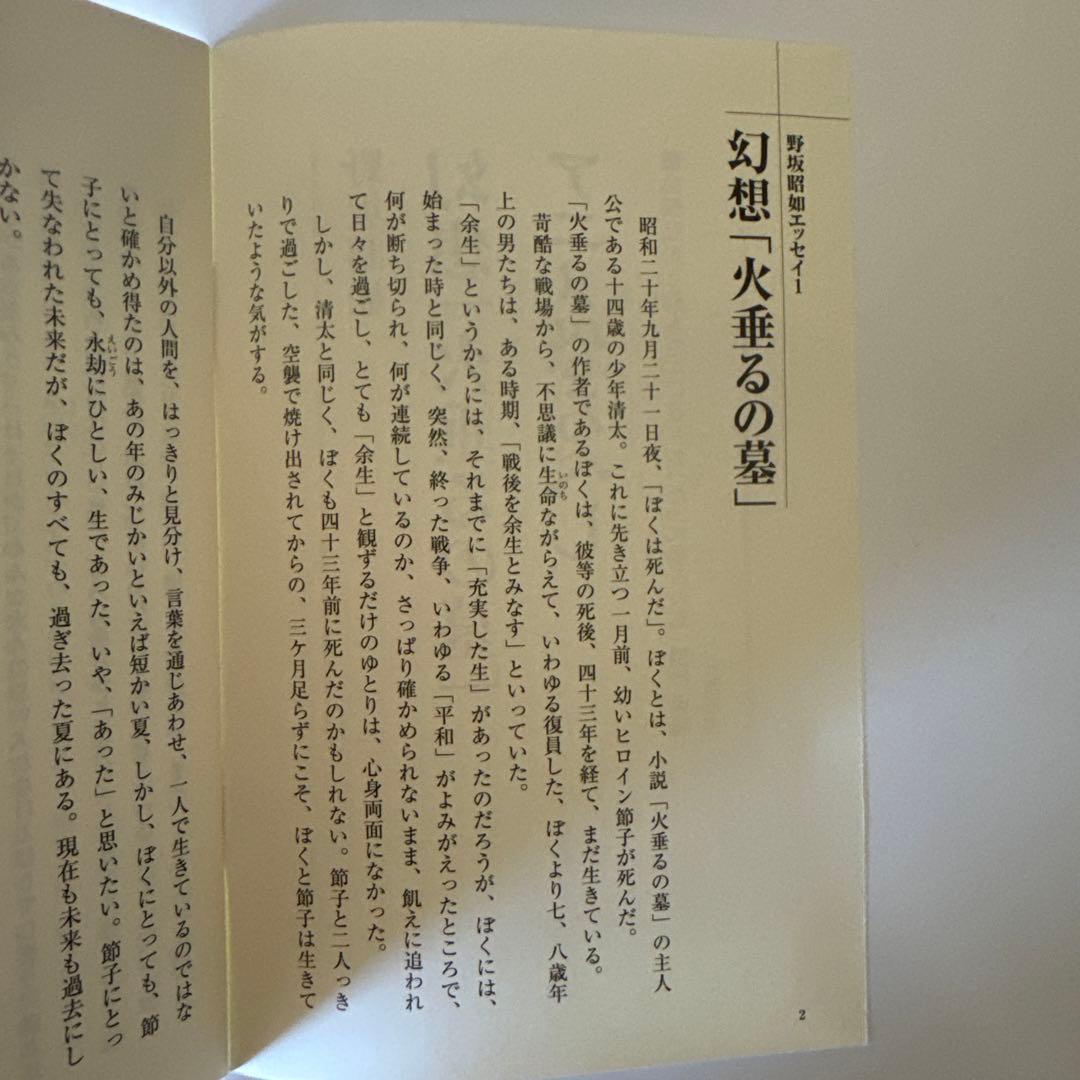 野坂昭如エッセイ1
幻想「火垂るの墓」
昭和二十年九月二十一日夜、「ぼくは死んだ」。ぼくとは、小説「火垂るの墓」の主人
公である十四歳の少年清太。これに先き立つ一月前、幼いヒロイン節子が死んだ。
「火垂るの墓」の作者であるぼくは、彼等の死後、四十三年を経て、まだ生きている。
苛酷な戦場から、不思議に生命ながらえて、いわゆる復員した、ぼくより七、八歳年
いのち
上の男たちは、ある時期、「戦後を余生とみなす」といっていた。
「余生」というからには、それまでに「充実した生」があったのだろうが、ぼくには、
始まった時と同じく、突然、終った戦争、いわゆる「平和」がよみがえったところで、
何が断ち切られ、何が連続しているのか、さっぱり確かめられないまま、飢えに追われ
て日々を過ごし、とても「余生」と観ずるだけのゆとりは、心身両面になかった。
しかし、清太と同じく、ぼくも四十三年前に死んだのかもしれない。節子と二人っき
りで過ごした、空襲で焼け出されてからの、三ケ月足らずにこそ、ぼくと節子は生きて
いたような気がする。
2
自分以外の人間を、はっきりと見分け、言葉を通じあわせ、一人で生きているのではな
いと確かめ得たのは、あの年のみじかいといえば短かい夏、しかし、ぼくにとっても、節
子にとっても、永劫にひとしい、生であった、いや、「あった」と思いたい。節子にとっ
えいごう
て失なわれた未来だが、ぼくのすべても、過ぎ去った夏にある。現在も未来も過去にし
かない。